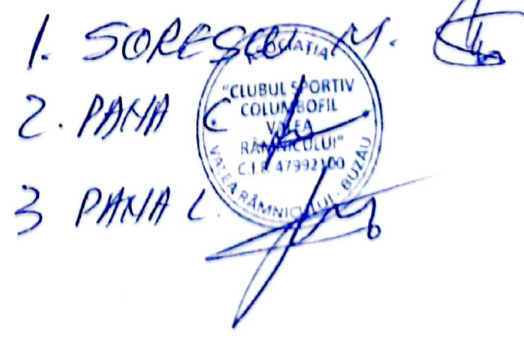 1. SORESCU M.
2. PANA C
3 PANA L.
ASOCIAȚIA
"CLUBUL SPORTIV
COLUMBOFIL
VALEA
RÂMNICULUI"
C.I.F. 47992100
VALEA RÂMNICULUI - BUZĂU